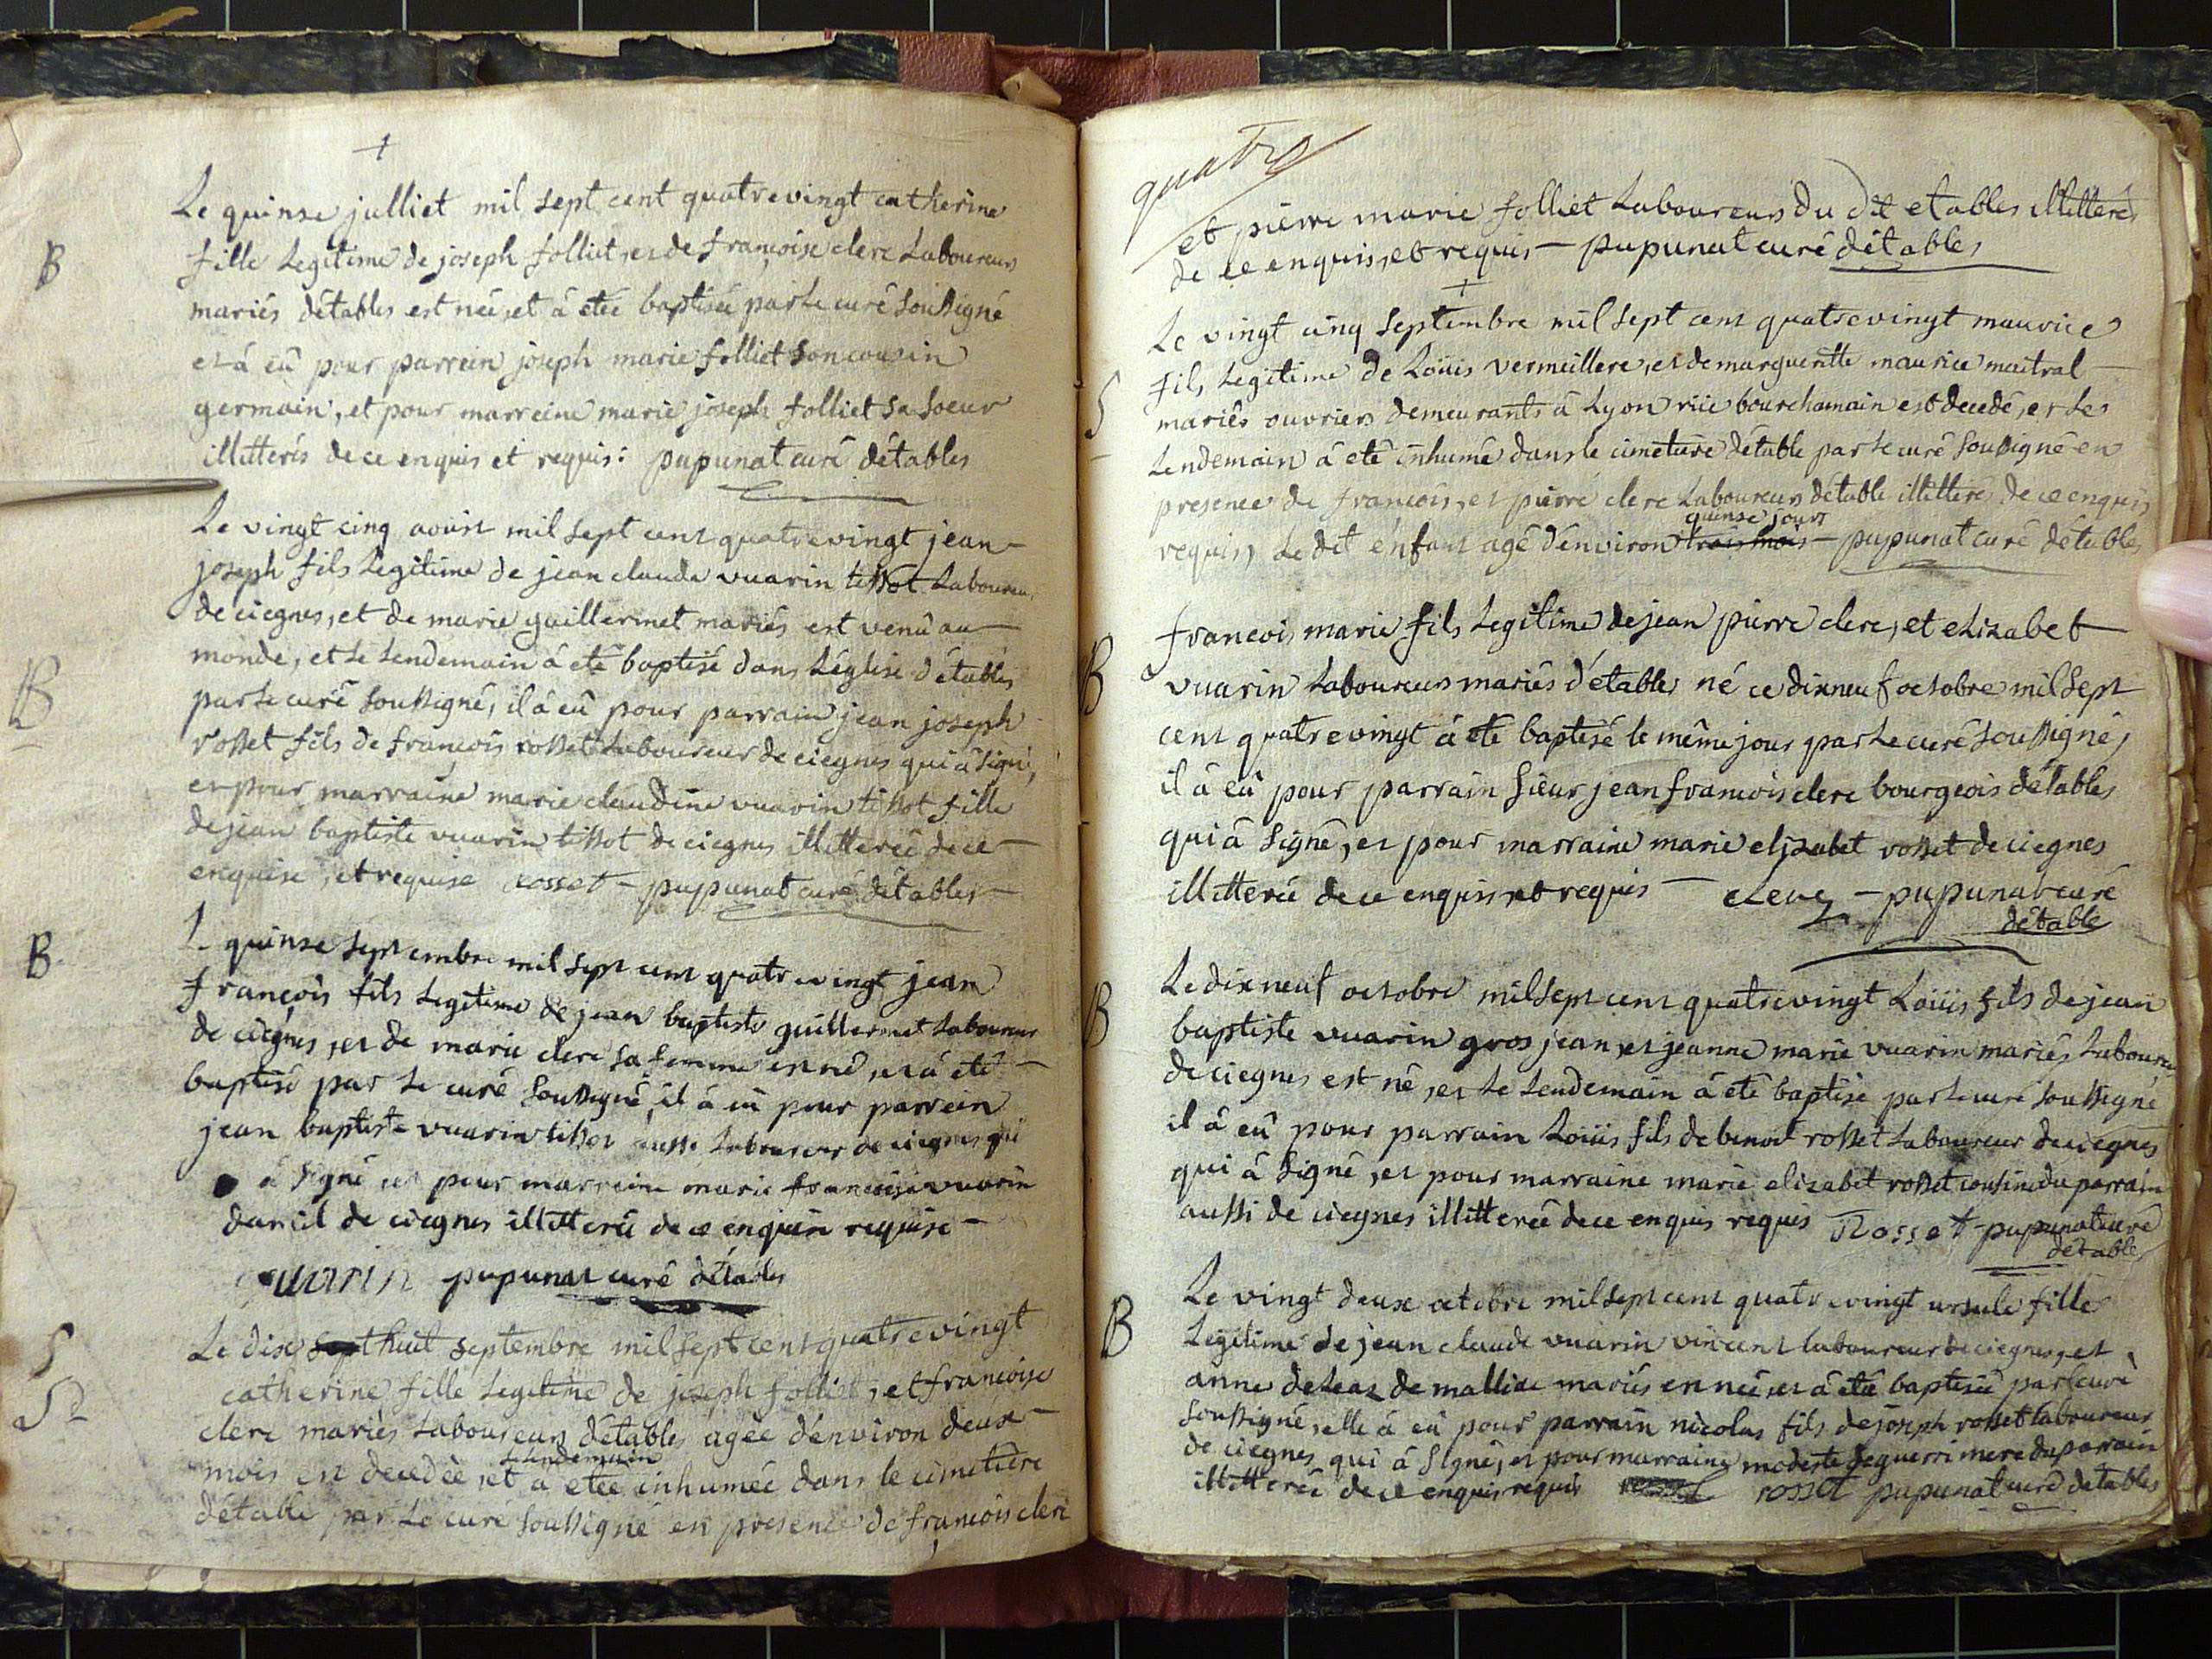 +
Le quinse julliet mil sept cent quatre vingt catherine
B
fille Legitime de joseph folliet, et de francoise clerc Laboureurs
mariés détables est neé, et à eteé baptiseé par Le curé Soussigné
et à eû pour parrein joseph marie folliet Son cousin
germain, et pour marreine marie joseph folliet Sa Soeur
illitterés de ce enquis et requis: pupunat curé détables
Le vingt cinq aoust mil sept cent quatre vingt jean
joseph fils Legitime de jean claude vuarin tissot Laboureur
de ciegnes, et de marie guillermet mariés est venû au
B
monde, et Le Lendemain à eté baptisé dans Léglise détables
par Le curé Soussigné, il à eû pour parrain jean joseph
rosset fils de francois rosset Laboureur de ciegnes qui à Signé,
et pour marraine marie claudine vuarin tissot fille
de jean baptiste vuarin tissot de ciegnes illittereé de ce
enquise, et requise rosset - pupunat curé détables
B
L quinse septembre mil sept cent quatre vingt jean
francois fils Legitime de jean baptiste guillermet Laboureur
de ciegnes, et de marie clerc sa femme est né, et à eté
baptisé par Le curé Soussigné, il à eû pour parrein
jean baptiste vuarin tissot aussi Laboureur de ciegnes qui
à signé, et pour marreine marie francoise vuarin
dancil de ciegnes illittereé de ce enquise requise
vuarin pupunat curé détables
S
Le dix sept huit septembre mil sept cent quatre vingt
catherine fille Legitime de joseph folliet, et francoise
clerc mariés Laboureurs détables ageé dénviron deux
Lendemain
mois est decedeé, et à eteé inhumeé dans le cimetiere
détable par Le curé Soussigné en presence de francois clerc
quatre
et pierre marie folliet Laboureurs du dit etables illitterés
de ce enquis, et requis - pupunat curé détables
+
Le vingt cinq Septembre mil sept cent quatre vingt maurice
S
fils Legitime de Loüis vermeillere, et de margueritte maurice maitral
mariés ouvriers demeurants à Lyon rüe bourchamain est decedé, et Le
Lendemain à eté inhumé dans le cimetiere détable par Le curé Soussigné en
presence de francois, et pierre clerc Laboureurs détable illitteré de ce enquis,
quinse jours
requis, Le dit enfant agé dénviron trois mois - pupunat curé détables
francois marie fils Legitime de jean pierre clerc, et elizabet
B
vuarin Laboureurs mariés détables né ce dixneuf octobre mil sept
cent quatre vingt à eté baptisé le même jour par Le curé Soussigné,
il à eû pour parrain Sieur jean francois clerc bourgeois détables
qui à Signé, et pour marraine marie elizabet rosset de ciegnes
illittereé de ce enquis, et requis - clerc - pupunat curé
détable
Le dixneuf octobre mil sept cent quatre vingt Loüis fils de jean
B
baptiste vuarin gros jean, et jeanne marie vuarin mariés Laboureurs
de ciegnes est né, et Le Lendemain à eté baptisé par Le curé Soussigné
il à eû pour parrain Loüis fils de benoit rosset Laboureur de ciegnes
qui à Signé, et pour marraine marie elizabet rosset cousine du parrain
aussi de ciegnes illittereé de ce enquis requis Rosset - pupunat curé
détables
Le vingt deux octobre mil sept cent quatre vingt ursule fille
B
Legitime de jean claude vuarin vincent laboureur de ciegnes, et
anne deleaz de malliac mariés est neé, et à eteé baptiseé par Le curé
Soussigné, elle à eû pour parrain nicolas fils de joseph rosset laboureur
de ciegnes, qui à Signé, et pour marraine modeste deguerri mere du parrain
illittereé de ce enquis requis rosset pupunat curé détables